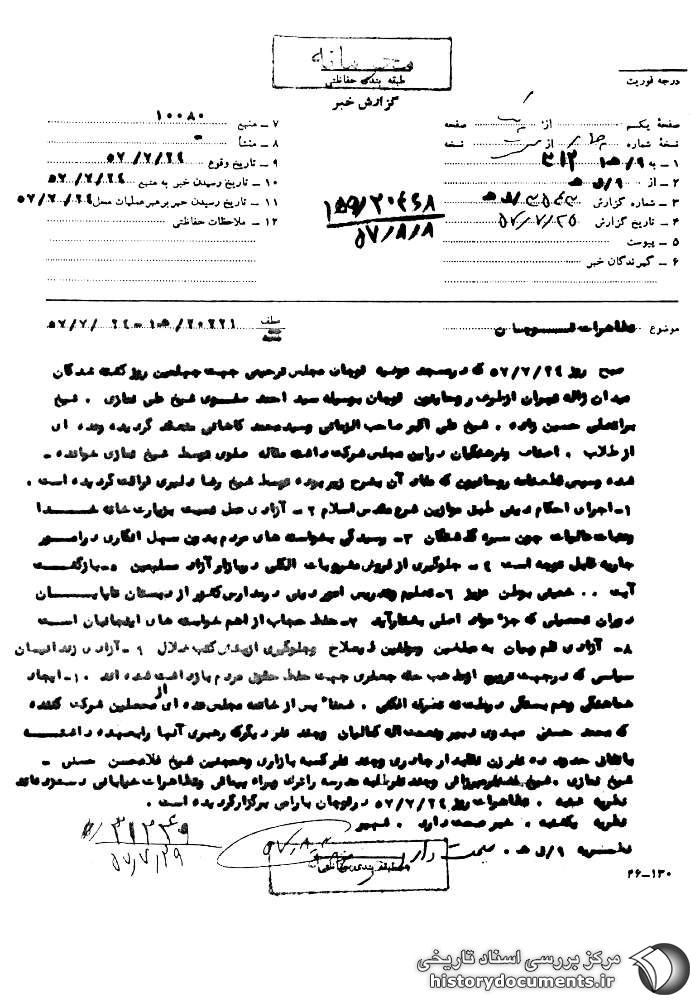 محرمانه
طبقه بندی حفاظتی
گزارش خبر
درجه فوریت
صفحهٔ یکم از یک صفحه
نسخهٔ شماره چهار از نسخه
۱ ـ به ۹/ﻫ۱ ۳۱۲
۲ ـ از ۹/ﻫ
۳ ـ شماره گزارش
۴ ـ تاریخ گزارش ۵۷/۷/۲۵
۵ ـ پیوست
۶ ـ گیرندگان خبر
۷ ـ منبع ۱۰۰۸۰
۸ ـ منشأ
۹ ـ تاریخ وقوع ۵۷/۷/۲۴
۱۰ ـ تاریخ رسیدن خبر به منبع ۵۷/۷/۲۴
۱۱ ـ تاریخ رسیدن خبر برهبر عملیات محل ۵۷/۷/۲۴
۱۲ ـ ملاحظات حفاظتی
۲۰۴۶۸
۵۷/۸/۸
موضوع تظاهرات قوچان
عطف
۲۰۲۲۱/ﻫ۱ ـ ۵۷/۷/۲۴
صبح روز ۵۷/۷/۲۴ که در مسجد عوضیه قوچان مجلس ترحیمی جهت چهلمین روز کشته شدگان
میدان ژاله تهران از طرف روحانیون قوچان بوسیله سید احمد شیخ علی نمازی ـ شیخ
براتعلی حسین زاده ـ شیخ علی اکبر صاحب الزمانی و سید محمد کاشانی منعقد گردیده وعده ای
از طلاب ـ اصناف وفرهنگیان در این مجلس شرکت داشته مقاله توسط شیخ نمازی خوانده ـ
شده وسپس قطعنامه روحانیون که مفاد آن بشرح زیر بوده توسط شیخ رضا دلیری قرائت گردیده است .
۱ـ اجرای احکام دینی طبق موازین شرع مقدس اسلام ۲ ـ آزادی عمل نسبت بزیارت خانه خدا
وعتبات عالیات چون سیره گذشتگان ۳ـ رسیدگی بخواسته های مردم بدون سهل انگاری در امور
جاریه قابل توجه است ۴ ـ جلوگیری از فروش مشروبات الکلی در بازار آزاد مسلمین ۵ـ بازگشت
آیت ... خمینی بوطن عزیز ۶ـ تعلیم وتدریس امور دینی در مدارس کشور از دبستان تا پایان
دوران تحصیلی که جزء مواد اصلی بشمار آید ۷ـ حفظ حجاب از اهم خواسته های اینجانبان است
۸ـ آزادی قلم وبیان به مبلغین ومؤلفین ذیصلاح وجلوگیری از پخش کتب ضلال ۹ ـ آزادی زندانیان
سیاسی که در جهت ترویج از مذهب حقه جعفری جهت حفظ حقوق مردم بازداشت شده اند ۱۰ـ ایجاد
هماهنگی وهم بستگی در ملت نه تفرقه افکنی . ضمناً پس از خاتمه مجلس عده ای از محصلین شرکت کننده
که محمد حسین مهدوی دبیر ونعمت اله کمالیان وچند نفر دیگر که رهبری آنها را بعهده داشته
باتفاق حدود ده نفر زن نقابدار چادری وچند نفر کسبه بازاری وهمچنین شیخ غلامحسن حسنی ـ
شیخ نمازی ـ شیخ وچند نفر طلبه مدرسه را ترک وبراه پیمائی وتظاهرات خیابانی دست زده اند
نظریه شنبه . تظاهرات روز ۵۷/۷/۲۴ در قوچان بآرامی برگزار گردیده است .
نظریه یکشنبه . خبر صحت دارد . خبیر
نظریه ۹/ﻫ . صحت دارد
۳۱۲۳۶۹
۵۷/۷/۲۹
۵۷/۸/۲
طبقه بندی حفاظتی
۲۶ـ۱۳۰
مرکز بررسی اسناد تاریخی
historydocuments.ir